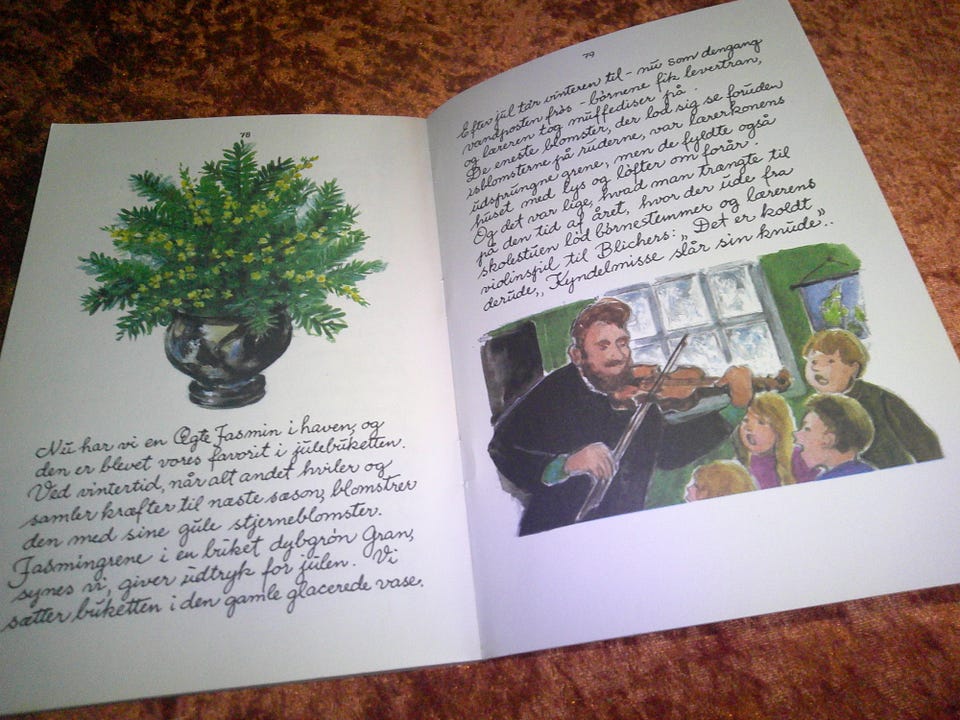 78
Nu har vi en Ægte Jasmin i haven, og
den er blevet vores favorit i julebuketten.
Ved vintertid, når alt andet hviler og
samler kræfter til næste sæson, blomstrer
den med sine gule stjerneblomster.
Jasmingrene i en buket dybgrøn Gran,
synes vi, giver udtryk for julen. Vi
sætter buketten i den gamle glacerede vase.
79
Efter jul tar vinteren til - nu som dengang
vandposten frøs - børnene fik levertran,
og læreren tog muffediser på.
De eneste blomster, der lod sig se foruden
isblomsterne på ruderne, var lærerkonens
udsprungne grene, men de fyldte også
huset med lys og løfter om forår.
Og det var lige, hvad man trængte til
på den tid af året, hvor der ude fra
skolestuen lød børnestemmer og lærerens
violinspil til Blichers: „Det er koldt
derude,, Kyndelmisse slår sin knude"..